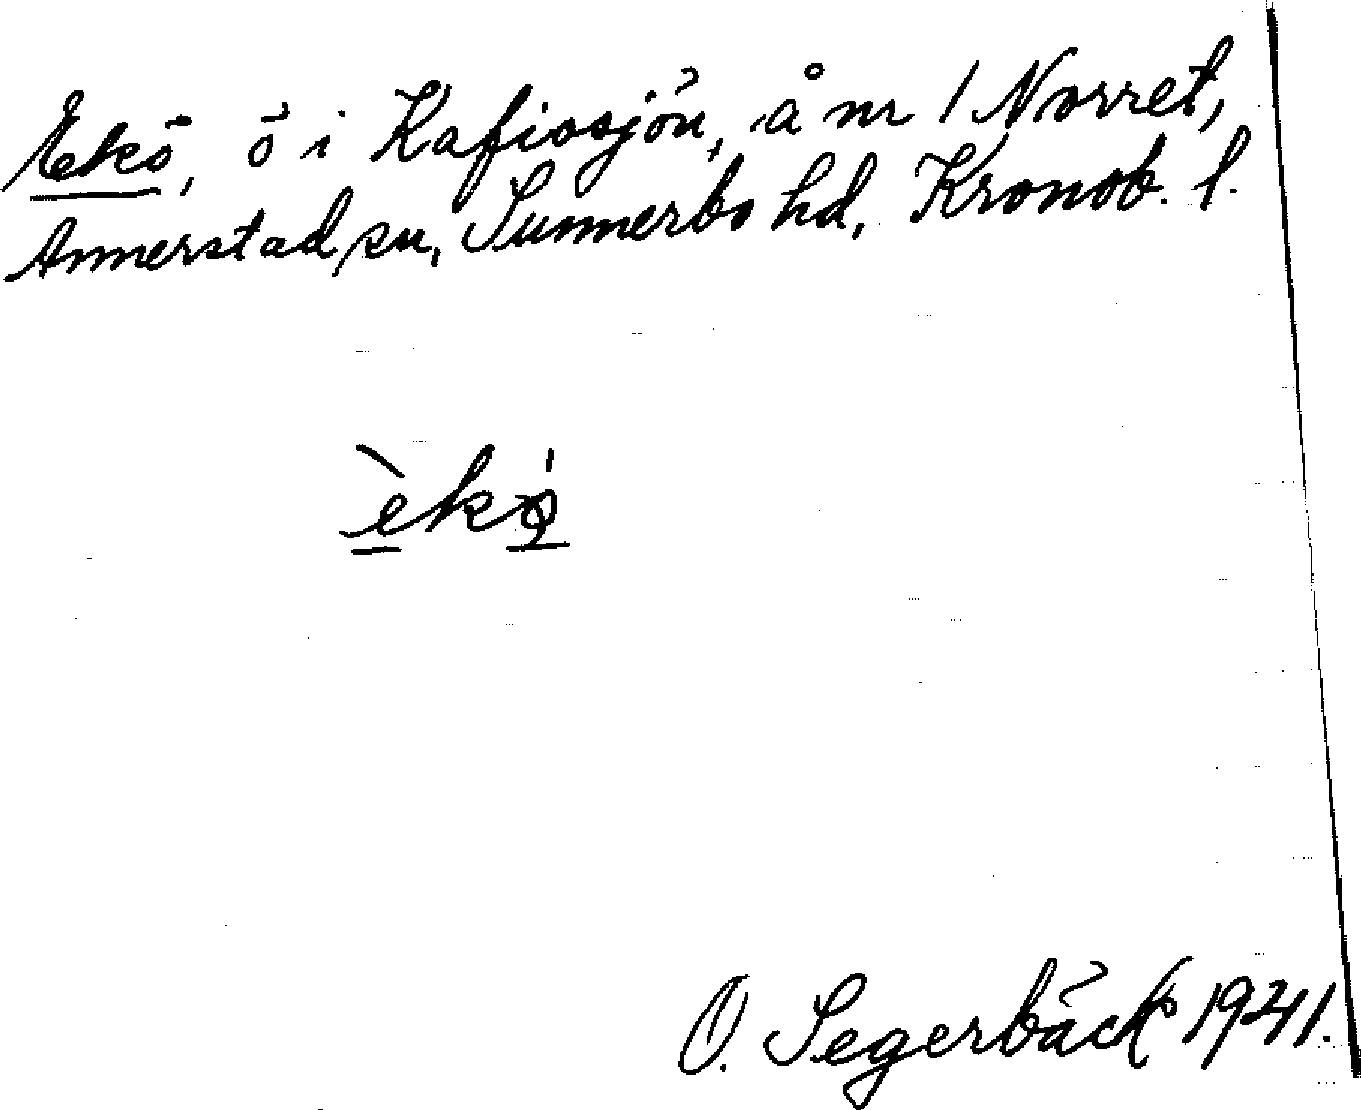 Ekö, ö i Kafiosjön, å nr 1 Norret,
Annerstad sn, Sunnerbo hd, Kronob. l.
èkö̀
O. Segerbäck 1941.